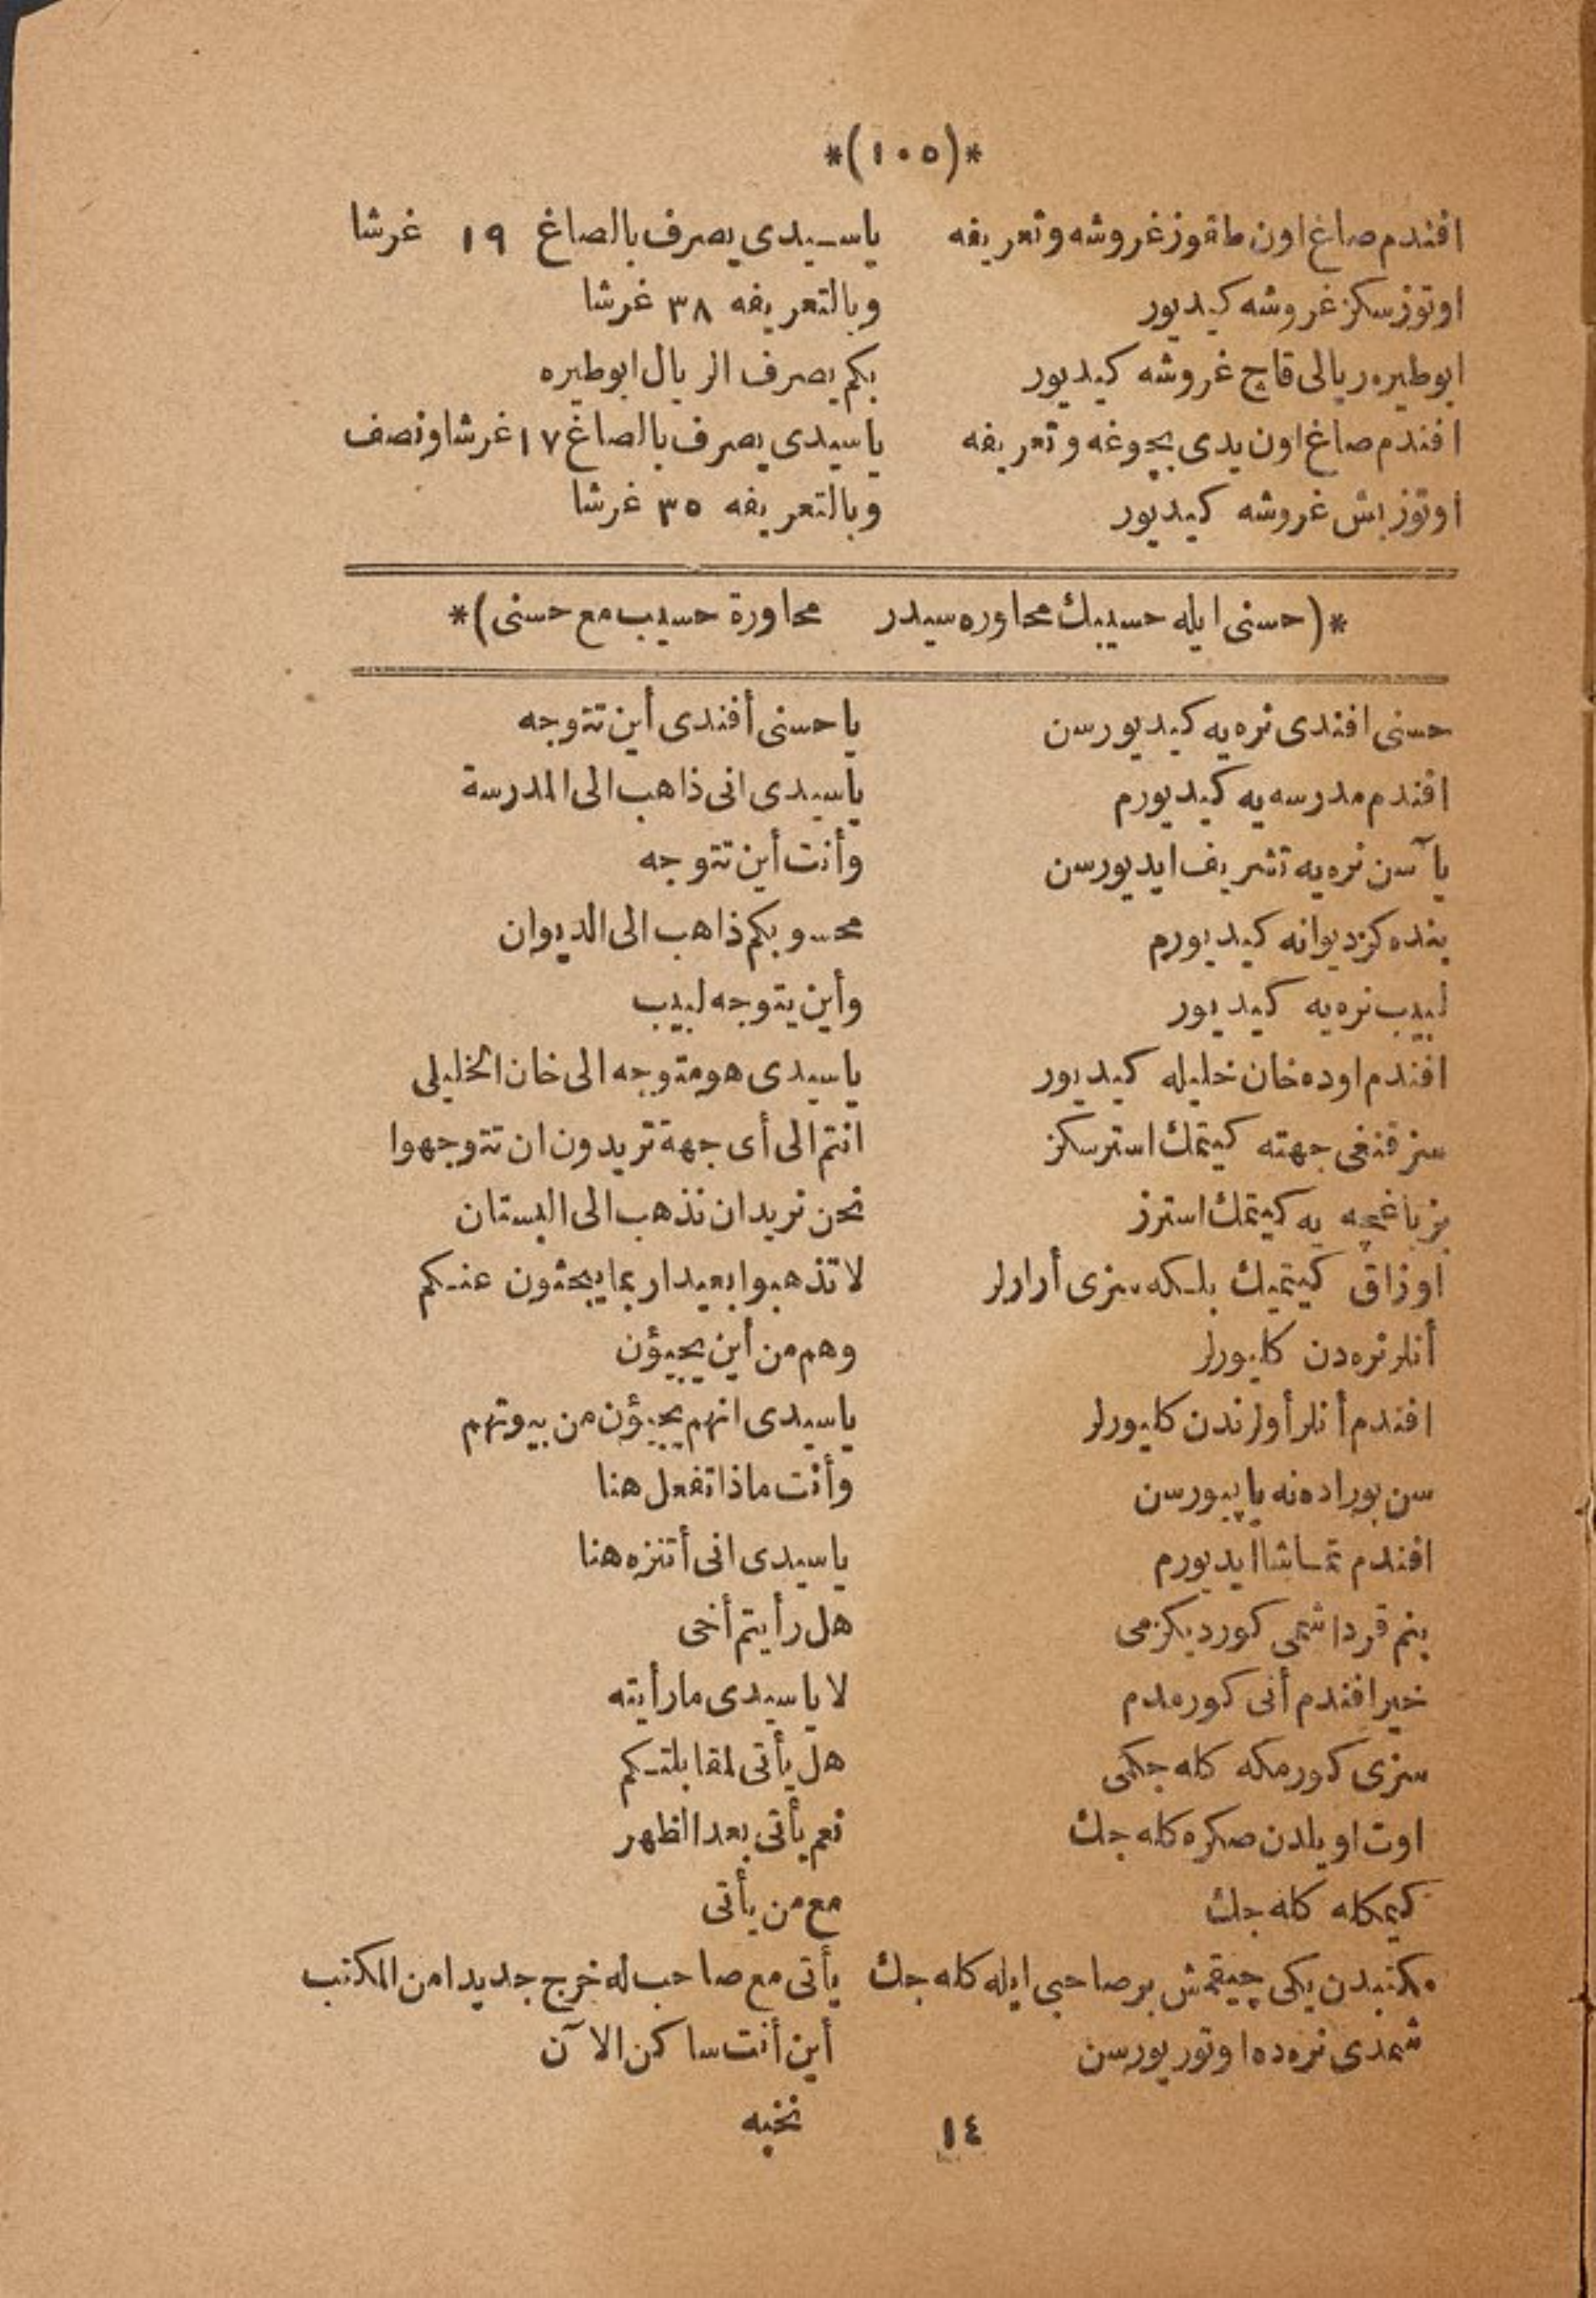 *(١٠٥)*
افندم صاغ اون طقوز غروشه و تعریفه یاسیدی یصرف بالصاغ ١٩ غرشا
اوتوز سکز غروشه کیدیور وبالتعریفه ٣٨ غرشا
ابوطیره ریالی قاچ غروشه کیدیور بکم یصرف الریال ابوطیره
افندم صاغ اون یدی بچوغه و تعریفه یاسیدی یصرف بالصاغ ١٧ غرشا ونصف
اوتوز بش غروشه کیدیور وبالتعریفه ٣٥ غرشا
*(حسنی ایله حسیبك محاوره سیدر محاورة حسیب مع حسنی)*
حسنی افندی نره یه کیدیورسن یا حسنی أفندی أین تتوجه
افندم مدرسه یه کیدیورم یاسیدی انی ذاهب الی المدرسة
یا آسن نره یه تشریف ایدیورسن وأنت أین تتوجه
بنده کز دیوانه کیدیورم محسوبکم ذاهب الی الدیوان
لبیب نره یه کیدیور وأین یتوجه لبیب
افندم اوده خان خلیله کیدیور یاسیدی هو متوجه الی خان الخلیلی
سز قنغی جهته کیتمك استرسکز انتم الی أی جهة تریدون ان تتوجهوا
بز باغچه یه کیتمك استرز نحن نرید ان نذهب الی البستان
اوزاق کیتمیك بلکه سزی أرارلر لا تذهبوا بعیدا ربما یبحثون عنکم
أنلر نره دن کلیورلر وهم من أین یجیؤن
افندم أنلر أولرندن کلیورلر یاسیدی انهم یجیؤن من بیوتهم
سن بوراده نه یاپیورسن وأنت ماذا تفعل هنا
افندم تماشا ایدیورم یاسیدی انی أتنزه هنا
بنم قرداشمی کوردیکزمی هل رأیتم أخی
خیر افندم أنی کورمدم لا یاسیدی ما رأیته
سزی کورمکه کله جکمی هل یأتی لمقابلتکم
اوت اویلدن صکره کله جك نعم یأتی بعد الظهر
کیمکله کله جك مع من یأتی
مکتبدن یکی چیقمش بر صاحبی ایله کله جك یأتی مع صاحب له خرج جدیدا من المکتب
شمدی نره ده اوتوریورسن أین أنت ساکن الآن
١٤ نخبه